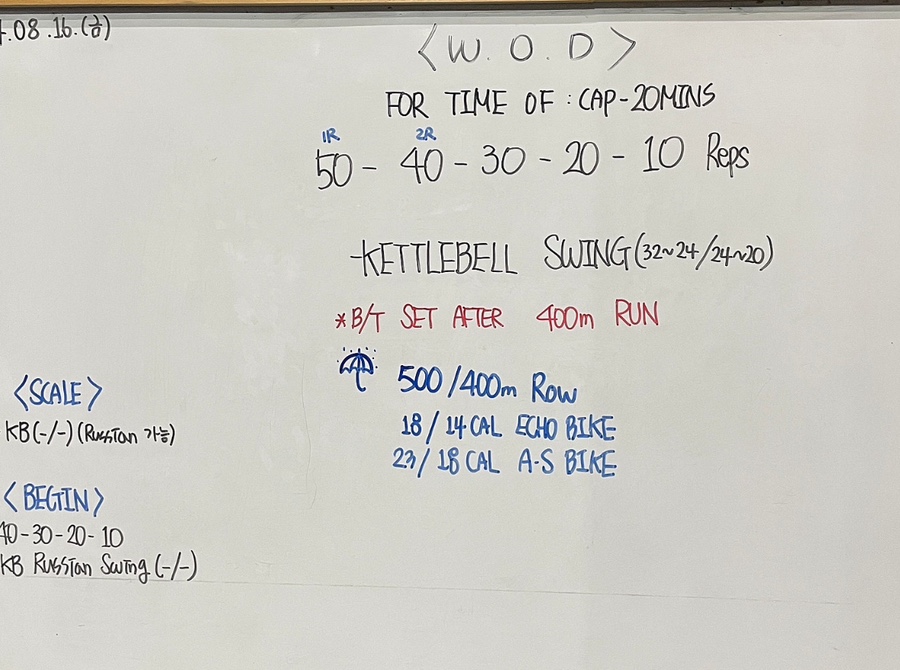 .08.16.(금)
<W.O.D>
FOR TIME OF : CAP-20MINS
1R 2R
50 - 40 - 30 - 20 - 10 Reps
-KETTLEBELL SWING(32~24/24~20)
*B/T SET AFTER 400m RUN
500/400m Row
18/14 CAL ECHO BIKE
23/18 CAL A-S BIKE
<SCALE>
KB(-/-)(Russian 가능)
<BEGIN>
40-30-20-10
KB Russian Swing (-/-)